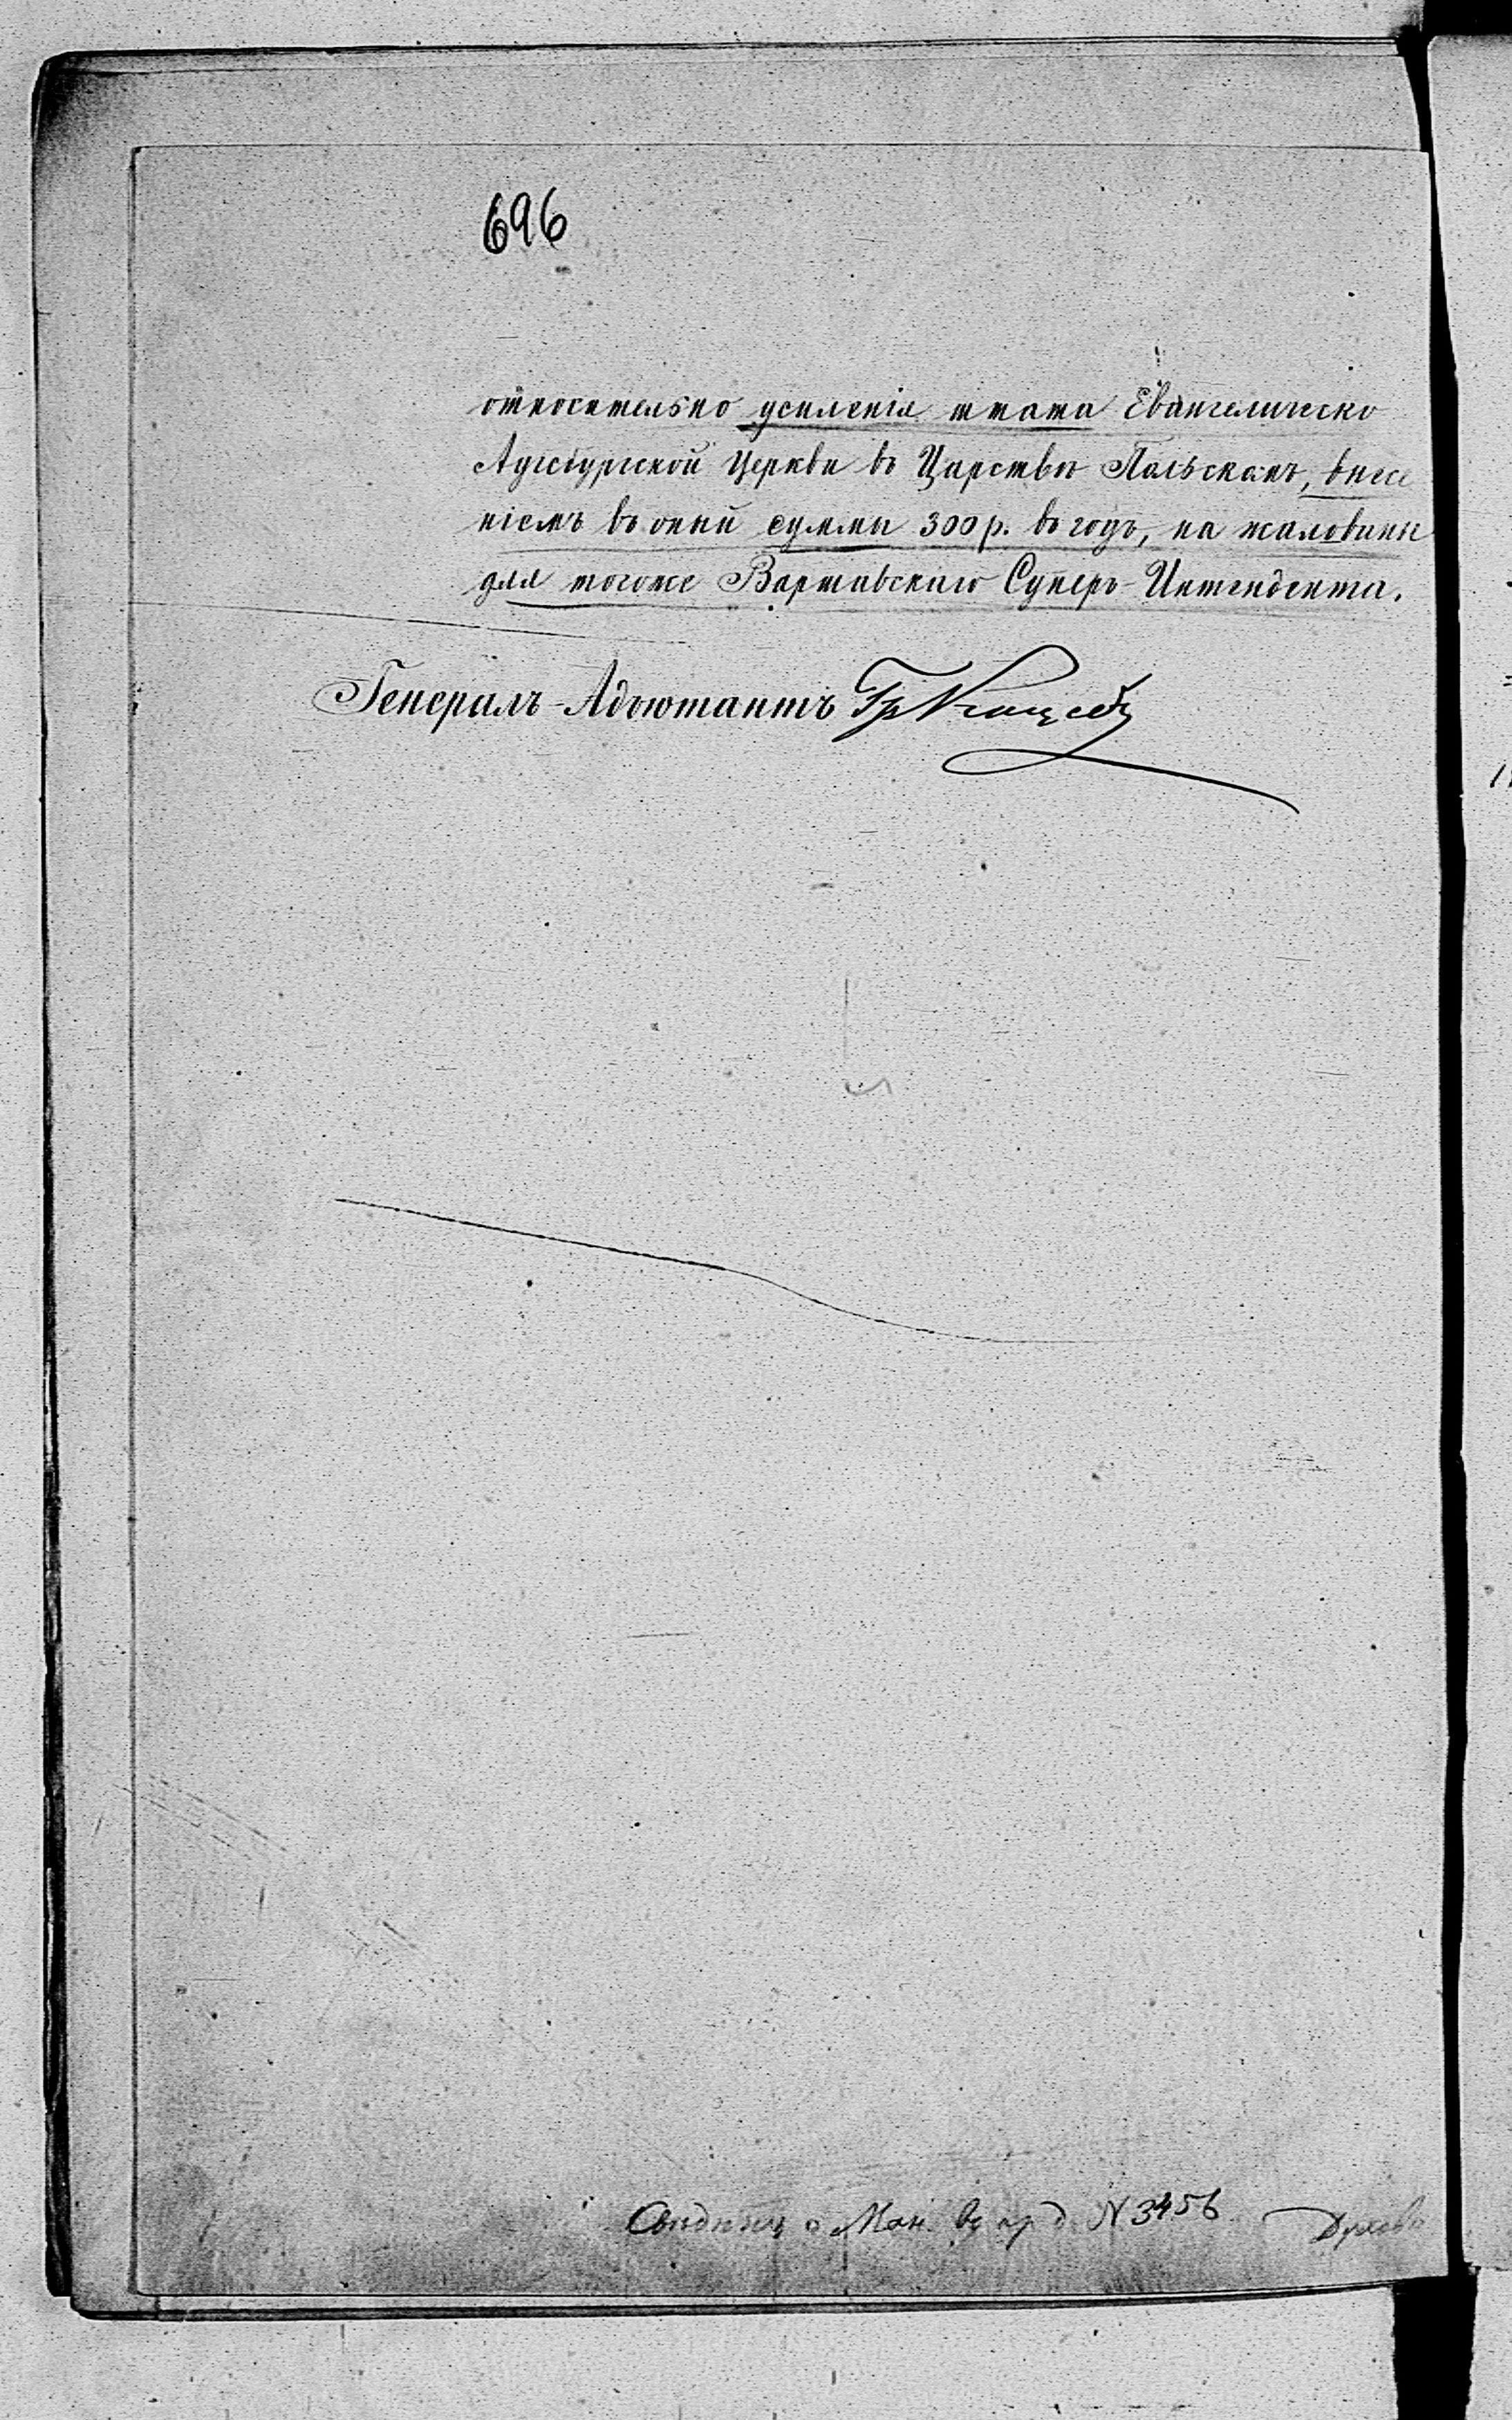 696
относительно усиленія штата Евангелическо
Аугсбургской Церкви въ Царствѣ Польскомъ, внесе
ніемъ въ оный суммы 300 р. въ годъ, на жалованье
для тогоже Варшавскаго Супер-Интендента.
Генералъ-Адъютантъ Гр
о Мон. въ д. N 3456